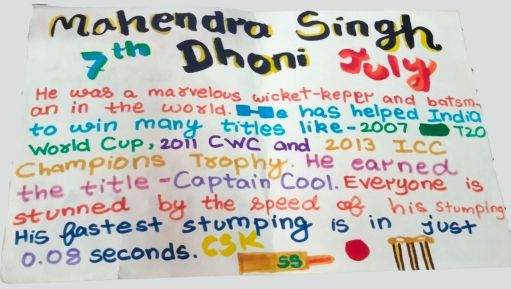 Mahendra Singh
7th Dhoni July
He was a marvelous wicket-keper and batsm-
an in the world. He has helped India
to win many titles like - 2007 T20
World Cup, 2011 CWC and 2013 ICC
Champions Trophy. He earned
the title - Captain Cool. Everyone is
stunned by the speed of his stumping.
His fastest stumping is in just
0.08 seconds. CSK
SS